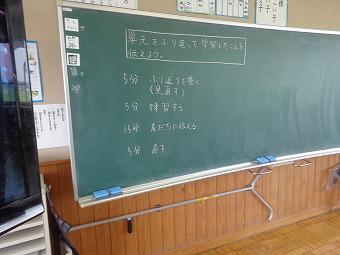 単元をふり返って学習したことを
伝えよう。
5分 ふり返りを書く
(見直す)
5分 練習する
15分 友だちに伝える
5分 直す